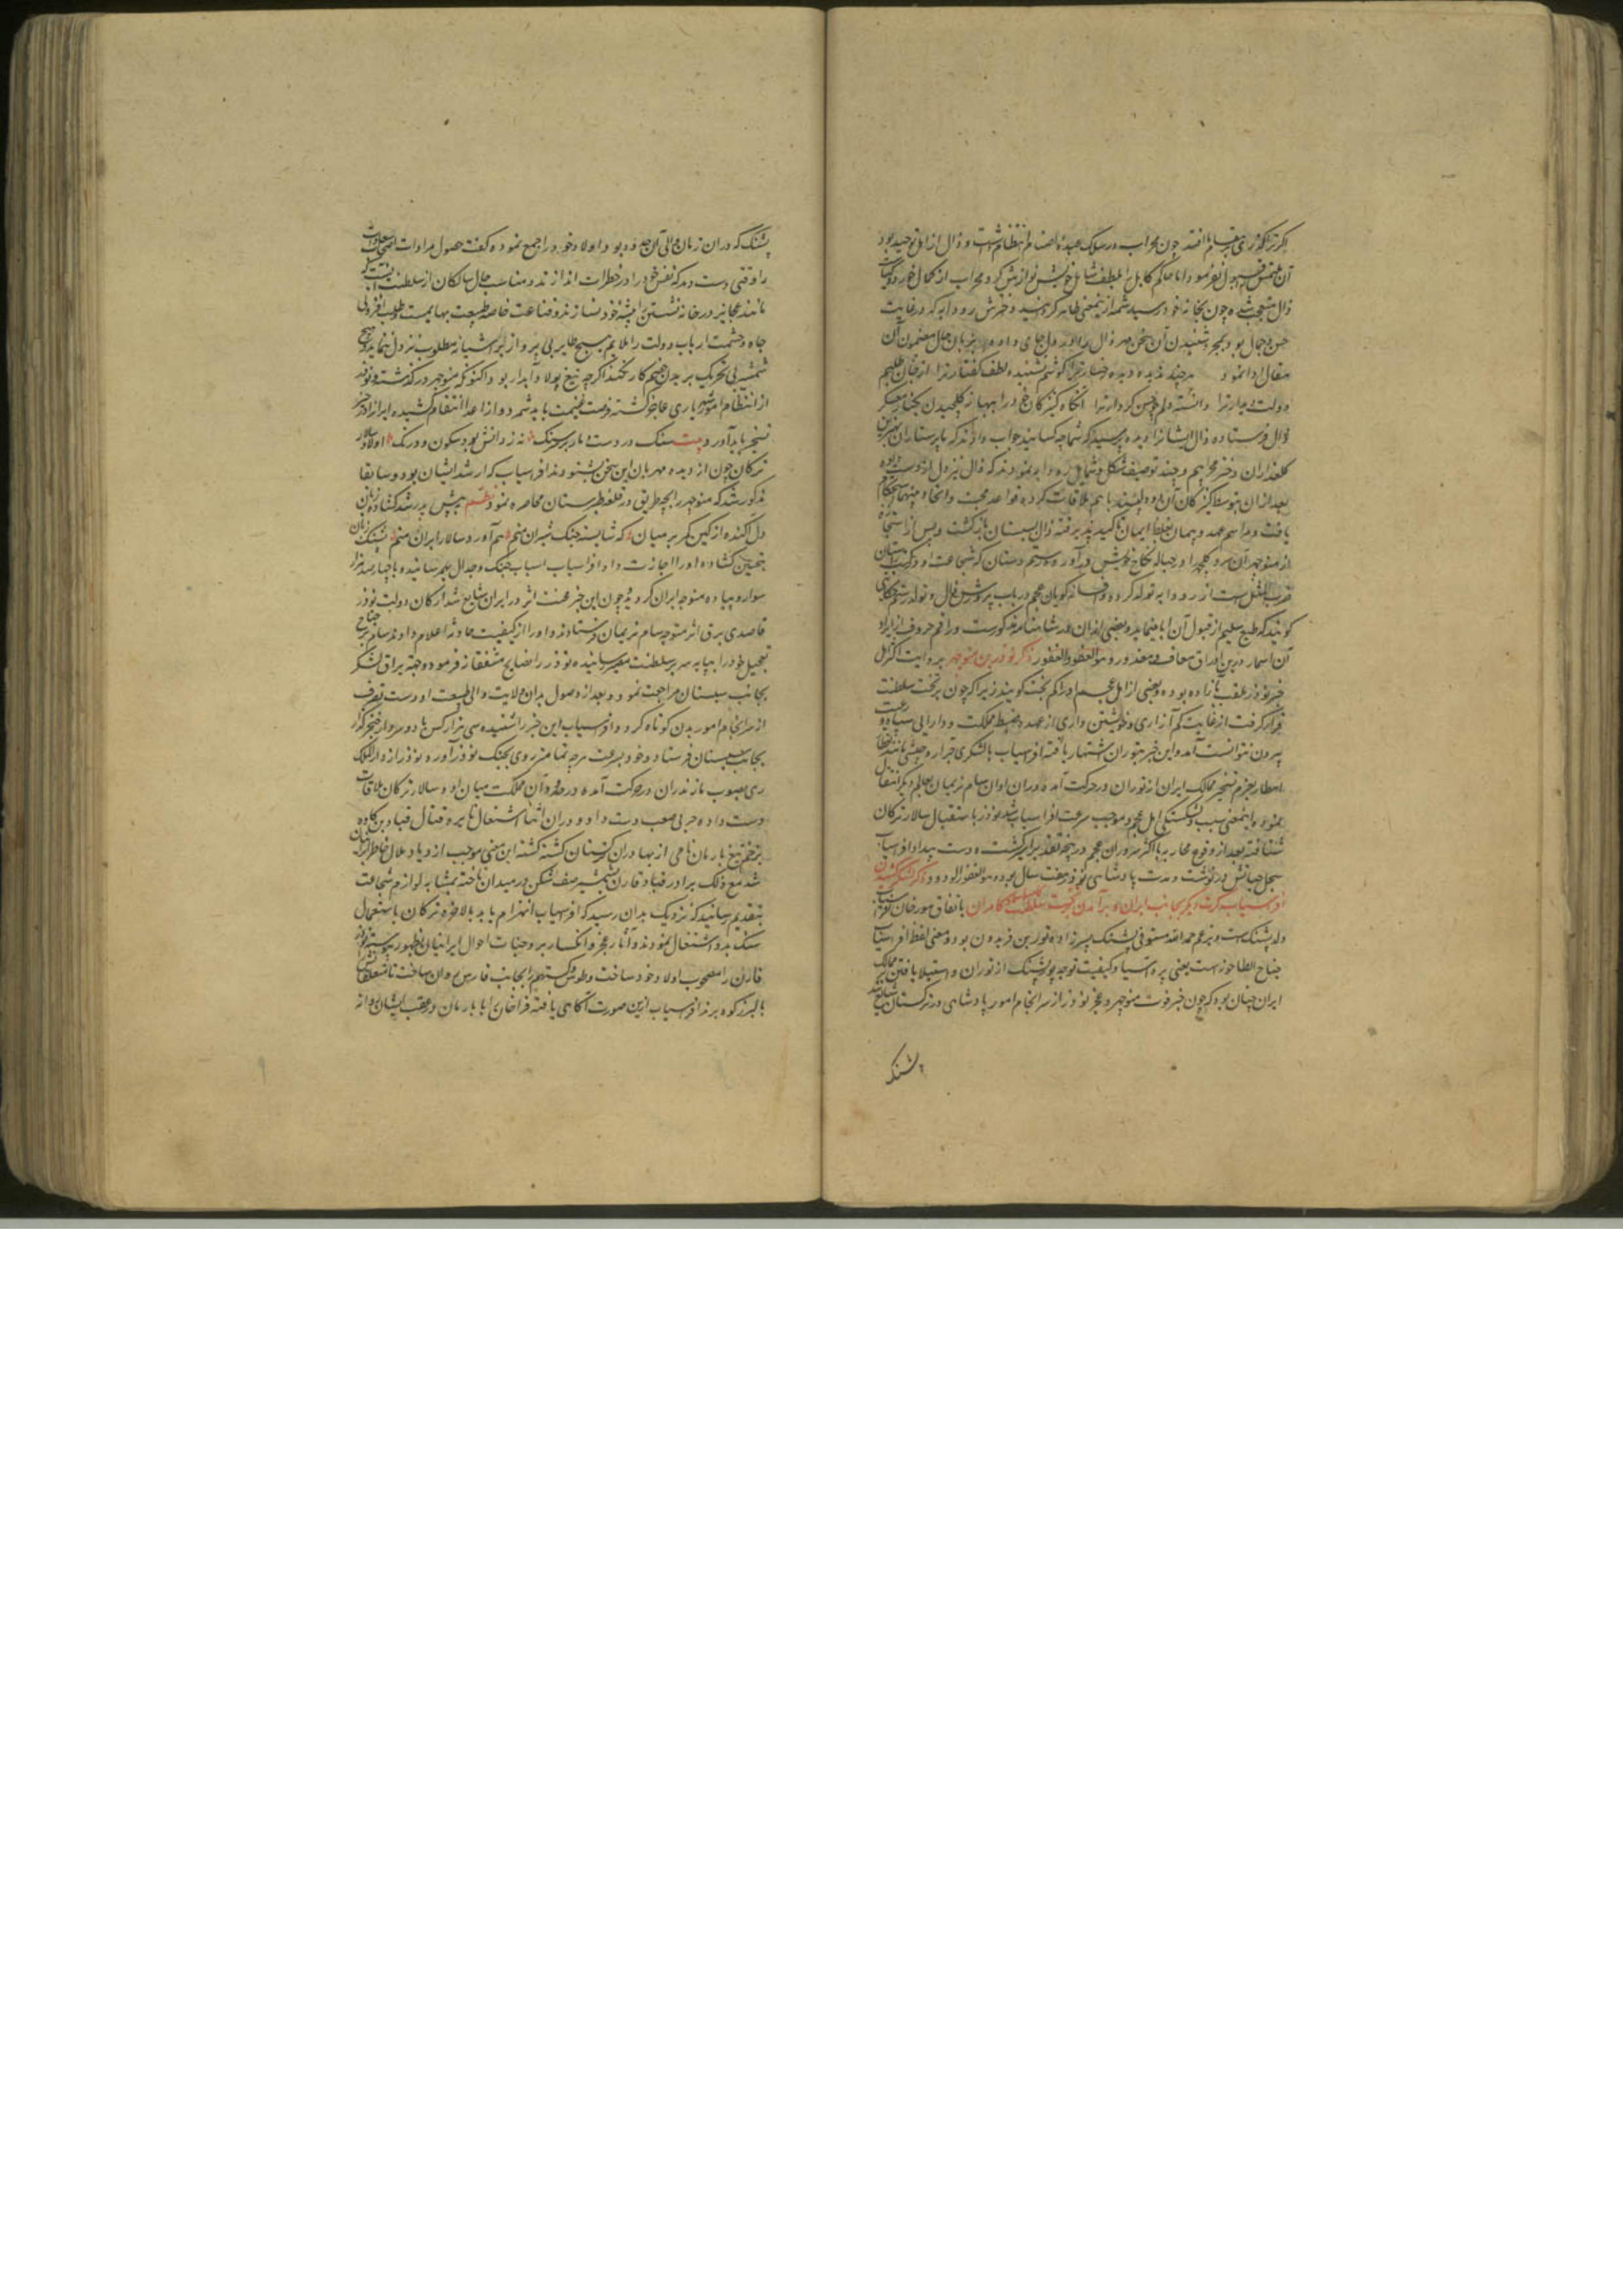 اکر ترا کذری بر مقام ما افتد چون محراب در سلک عبدهٔ اصنام انتظام داشت و زال از اهل توحید بود
آن ملتمس قبول نفرمود اما حاکم کابل را بلطف شمایل خویش نوازش کرد و محراب از کمال خرد و کیاست
زال متعجب شده چون بخانهٔ خود رسید شمه از ینمعنی ظاهر کردانید و دخترش رودابه که در غایت
حسن و جمال بود بمجرد شنیدن آن سخن مهر زال را در دل جای داده بزبان حال مضمون این
مقال ادا نمود هر چند ندیده دیده رخسار ترا کوشم نشنیده لطف کفتار ترا
دولت دیدار ترا دانسته دلم حسن کردار ترا آنکاه کنیزکان خود را ببهانه کلچیدن بکنار معسکر
زال فرستاده زال ایشانرا دیده پرسید که شما چه کسانید جواب دادند که ما پرستاران
کلعذاران دختر محرابیم و چند توصیف شکل و شمایل رودابه نمودند که زال نیز دل از دست داده
بعد از آن بتوسط کنیزکان آن دو دلپسند با هم ملاقات کرده قواعد محبت و اتحاد میانهما استحکام
یافت و مراسم عهد و پیمان بغلاظ ایمان تاکید پذیرفته زال بسیستان بازکشت و پس از استجازه
از منوچهر آن سرو کلچهره را در حباله نکاح خویش در آورد و رستم دستان که شجاعت او در کتب
ضرب المثل است از رودابه تولد کرد و افسانه کویان عجم در باب پرورش زال و تولد رستم حکایتی
کویند که طبع سلیم از قبول آن ابا مینماید و بعضی از آن در شاهنامه مذکورست و راقم حروف از ایراد
آن اسمار درین اوراق معاف و معذور و هو العفو الغفور ذکر نوذر بن منوچهر بروایت اکثر اهل
خبر نوذر ملقب بازاده بوده و بعضی از اهل عجم او را کم بخت کویند زیرا که چون بر تخت سلطنت
قرار کرفت از غایت کم آزاری و خویشتن داری از عهده ضبط مملکت و دارایی سپاه و رعیت
بیرون نتوانست آمد و این خبر بتوران اشتهار یافته افراسیاب با لشکری جرار و جیشی مانند قطار
امطار بعزم تسخیر ممالک ایران از توران در حرکت آمد و در آن اوان سام نریمان بعالم دیکر انتقال
نموده اینمعنی سبب دل شکستکی اهل عجم و موجب سرعت افراسیاب شد نوذر باستقبال سالار ترکان
شتافته بعد از وقوع محاربه با اکثر سروران عجم در پنجه تقدیر اسیر کشت و دست بیداد افراسیاب
سجل حیاتش در نوشت و مدت پادشاهی نوذر هفت سال بود و هو الغفور الودود ذکر لشکر کشیدن
افراسیاب کرت دیکر بجانب ایران و بر آمدن بتخت سلطنت کامران باتفاق مورخان افراسیاب
ولد پشنک است و بزعم حمد الله مستوفی پشنک پسر زاده تور بن فریدون بود و معنی لفظ افراسیاب
جناح الطاحونه است یعنی پره آسیا و کیفیت توجه پور پشنک از توران و استیلا یافتن بر ممالک
ایران چنان بود که چون خبر فوت منوچهر و عجز نوذر از سر انجام امور پادشاهی در ترکستان شایع شد
پشنک
پشنک که در آن زمان والی آن حدود بود اولاد خود را جمع نموده کفت حصول مرادات
را وقتی دست دهد که نفس خود را در خطرات اندازند و مناسب حال سالکان راه سلطنت آنست که
مانند عجایز در خانه نشستن را پیشه خود نسازند و قناعت خاصه طبیعت بهایم است و طلب افزونی
جاه و حشمت ارباب دولت را ملایم هیچ طایر بی پرواز بر آشیانه مطلوب نزول ننماید و هیچ
شمشیر بی تحریک بر بدن خصم کار نکند اکرچه تیغ پولاد آبدار بود اکنون که منوچهر در کذشته و نوذر
از انتظام امور شهریاری عاجز کشته فرصت غنیمت باید شمرد و از اعدا انتقام کشیده ایرانرا در حیز
تسخیر باید آورد بیت سنک در دست و مار بر سر سنک نه ز دانش بود سکون و درنک اولاد سالار
ترکان چون از دیده مهربان این سخن بشنودند افراسیاب که ارشد ایشان بود و سابقا
مذکور شد که منوچهر را بچه طریق در قلعه طبرستان محاصره نمود نظم به پیش پدر شد کشاده زبان
دل آکنده از کین کمر بر میان که شایسته جنک شیران منم هم آورد سالار ایران منم پشنک زبان
بتحسین کشاده او را اجازت داد و افراسیاب اسباب جنک و جدال بهم رسانیده با چهار صد هزار
سوار و پیاده متوجه ایران کردید و چون این خبر محنت اثر در ایران شایع شد ارکان دولت نوذر
قاصدی برق اثر متوجه سام نریمان فرستادند و او را از کیفیت حادثه اعلام دادند سام بر جناح
تعجیل خود را بپایه سریر سلطنت مصیر رسانیده نوذر را نصایح مشفقانه فرمود و جهة یراق لشکر
بجانب سیستان مراجعت نمود و بعد از وصول بدان ولایت والی طبیعت او دست تصرف
از سر انجام امور بدن کوتاه کرد و افراسیاب این خبر را شنیده سی هزار کس با دو سردار خنجر کذار
بجانب سیستان فرستاد و خود بسرعت هر چه تمامتر روی بجنک نوذر آورد و نوذر از دار الملک
ری بصوب مازندران در حرکت آمده در حدود آن مملکت میان او و سالار ترکان ملاقات
دست داده حربی صعب دست داد و در آن اثنا اشتعال نایره قتال قباد بن کاوه
بزخم تیغ بارمان نامی از بهادران ترکستان کشته کشته این معنی موجب ازدیاد ملال خاطر ایرانیان
شد مع ذلک برادر قباد قارن بشمشیر صف شکن در میدان تاخته بمثابه لوازم شجاعت
بتقدیم رسانید که نزدیک بدان رسید که افراسیاب انهزام یابد بالاخره ترکان باستعمال
سنک یده اشتغال نمودند و آثار عجز و انکسار بر وجنات احوال ایرانیان بظهور پیوسته نوذر
قارن را مصحوب اولاد خود ساخت و طوس و کستهم را بجانب فارس روان ساخت تا متعلقان
بالبرز کوه برند افراسیاب ازین صورت آکاهی یافته قراخان را با بارمان در عقب ایشان روانه